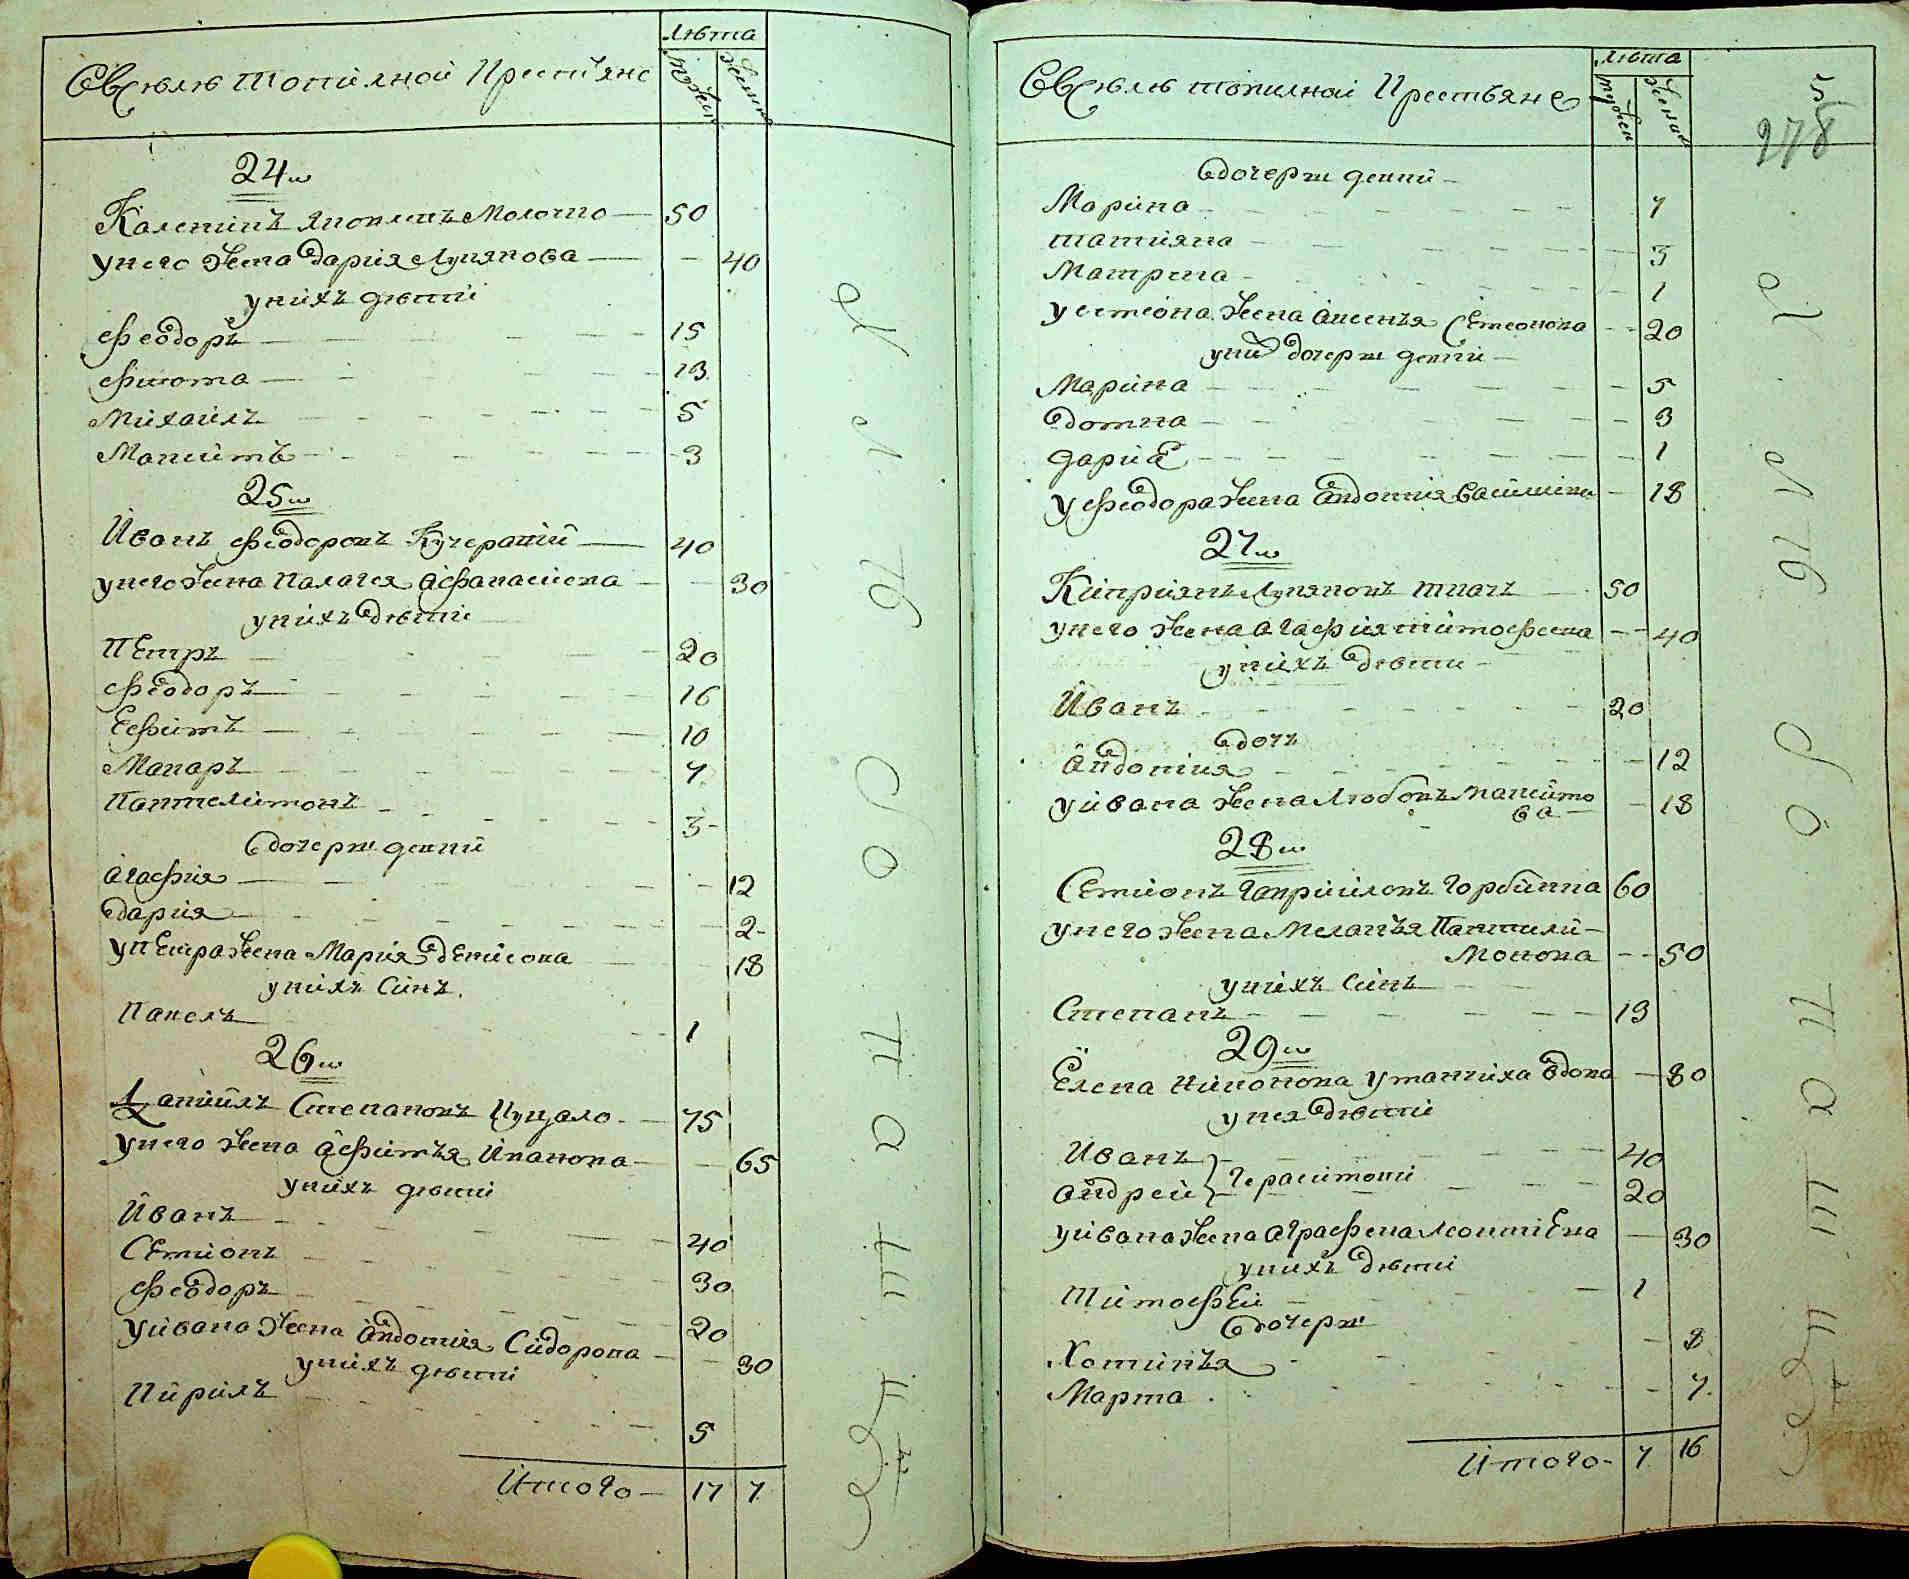 Всѣлѣ Топилной Крестьянѣ
лѣта
мужск
женск
24й
Каленикъ Яковлевъ Молочко — 50
унего жена Дария Лукянова — 40
унихъ дѣти
Феодоръ — 15
Филота — 13
Михаилъ — 5
Максимъ — 3
25й
Иванъ Феодоровъ Кучерявий — 40
унего жена Палагея Афанасиева — 30
унихъ дѣти
Петръ — 20
Феодоръ — 16
Ефимъ — 10
Макаръ — 7
Пантелимонъ — 3
дочери дѣти
Агафия — 12
Дария — 2
уПетра жена Мария Денисова — 18
унихъ синъ
Павелъ — 1
26й
Данийлъ Степановъ Цуцало — 75
унего жена Афимъя Иванова — 65
унихъ дѣти
Иванъ — 40
Семионъ — 30
Феодоръ — 20
уИвана жена Авдотия Сидорова — 30
унихъ дѣти
Кирилъ — 5
Итого — 17 7
Всѣлѣ Топилной Крестьяне
лѣта
мужск
женск
5
278
дочери дѣти
Марина — 7
Татияна — 3
Матрена — 1
уСемиона жена Аксенъя Семионова — 20
уних дочери дѣти
Марина — 5
Домна — 3
Дария — 1
уФеодора жена Авдотия Василиева — 18
27й
Киприянъ Лукяновъ Ткачъ — 50
унего жена Агафия Тимофеева — 40
унихъ дѣти
Иванъ — 20
дочь
Авдотия — 12
уИвана жена Любовъ Максимо
ва — 18
28й
Семионъ Гаврийловъ Горбинка 60
унего жена Меланъя Пантили-
монова — 50
унихъ синъ
Степанъ — 13
29й
Елена Никонова Уманчиха вдова — 80
унея дѣти
Иванъ — 40
Андрей } Герасимови — 20
уИвана жена Аграфена Леонтиева — 30
унихъ дѣти
Тимофей — 1
дочери
Хотинъя — 8
Марта — 7
Итого — 7 16